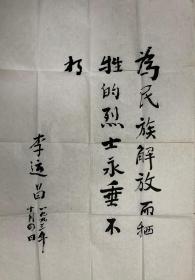 為民族解放而牺
牲的烈士永垂不
朽
李运昌
一九九三年
十月四日